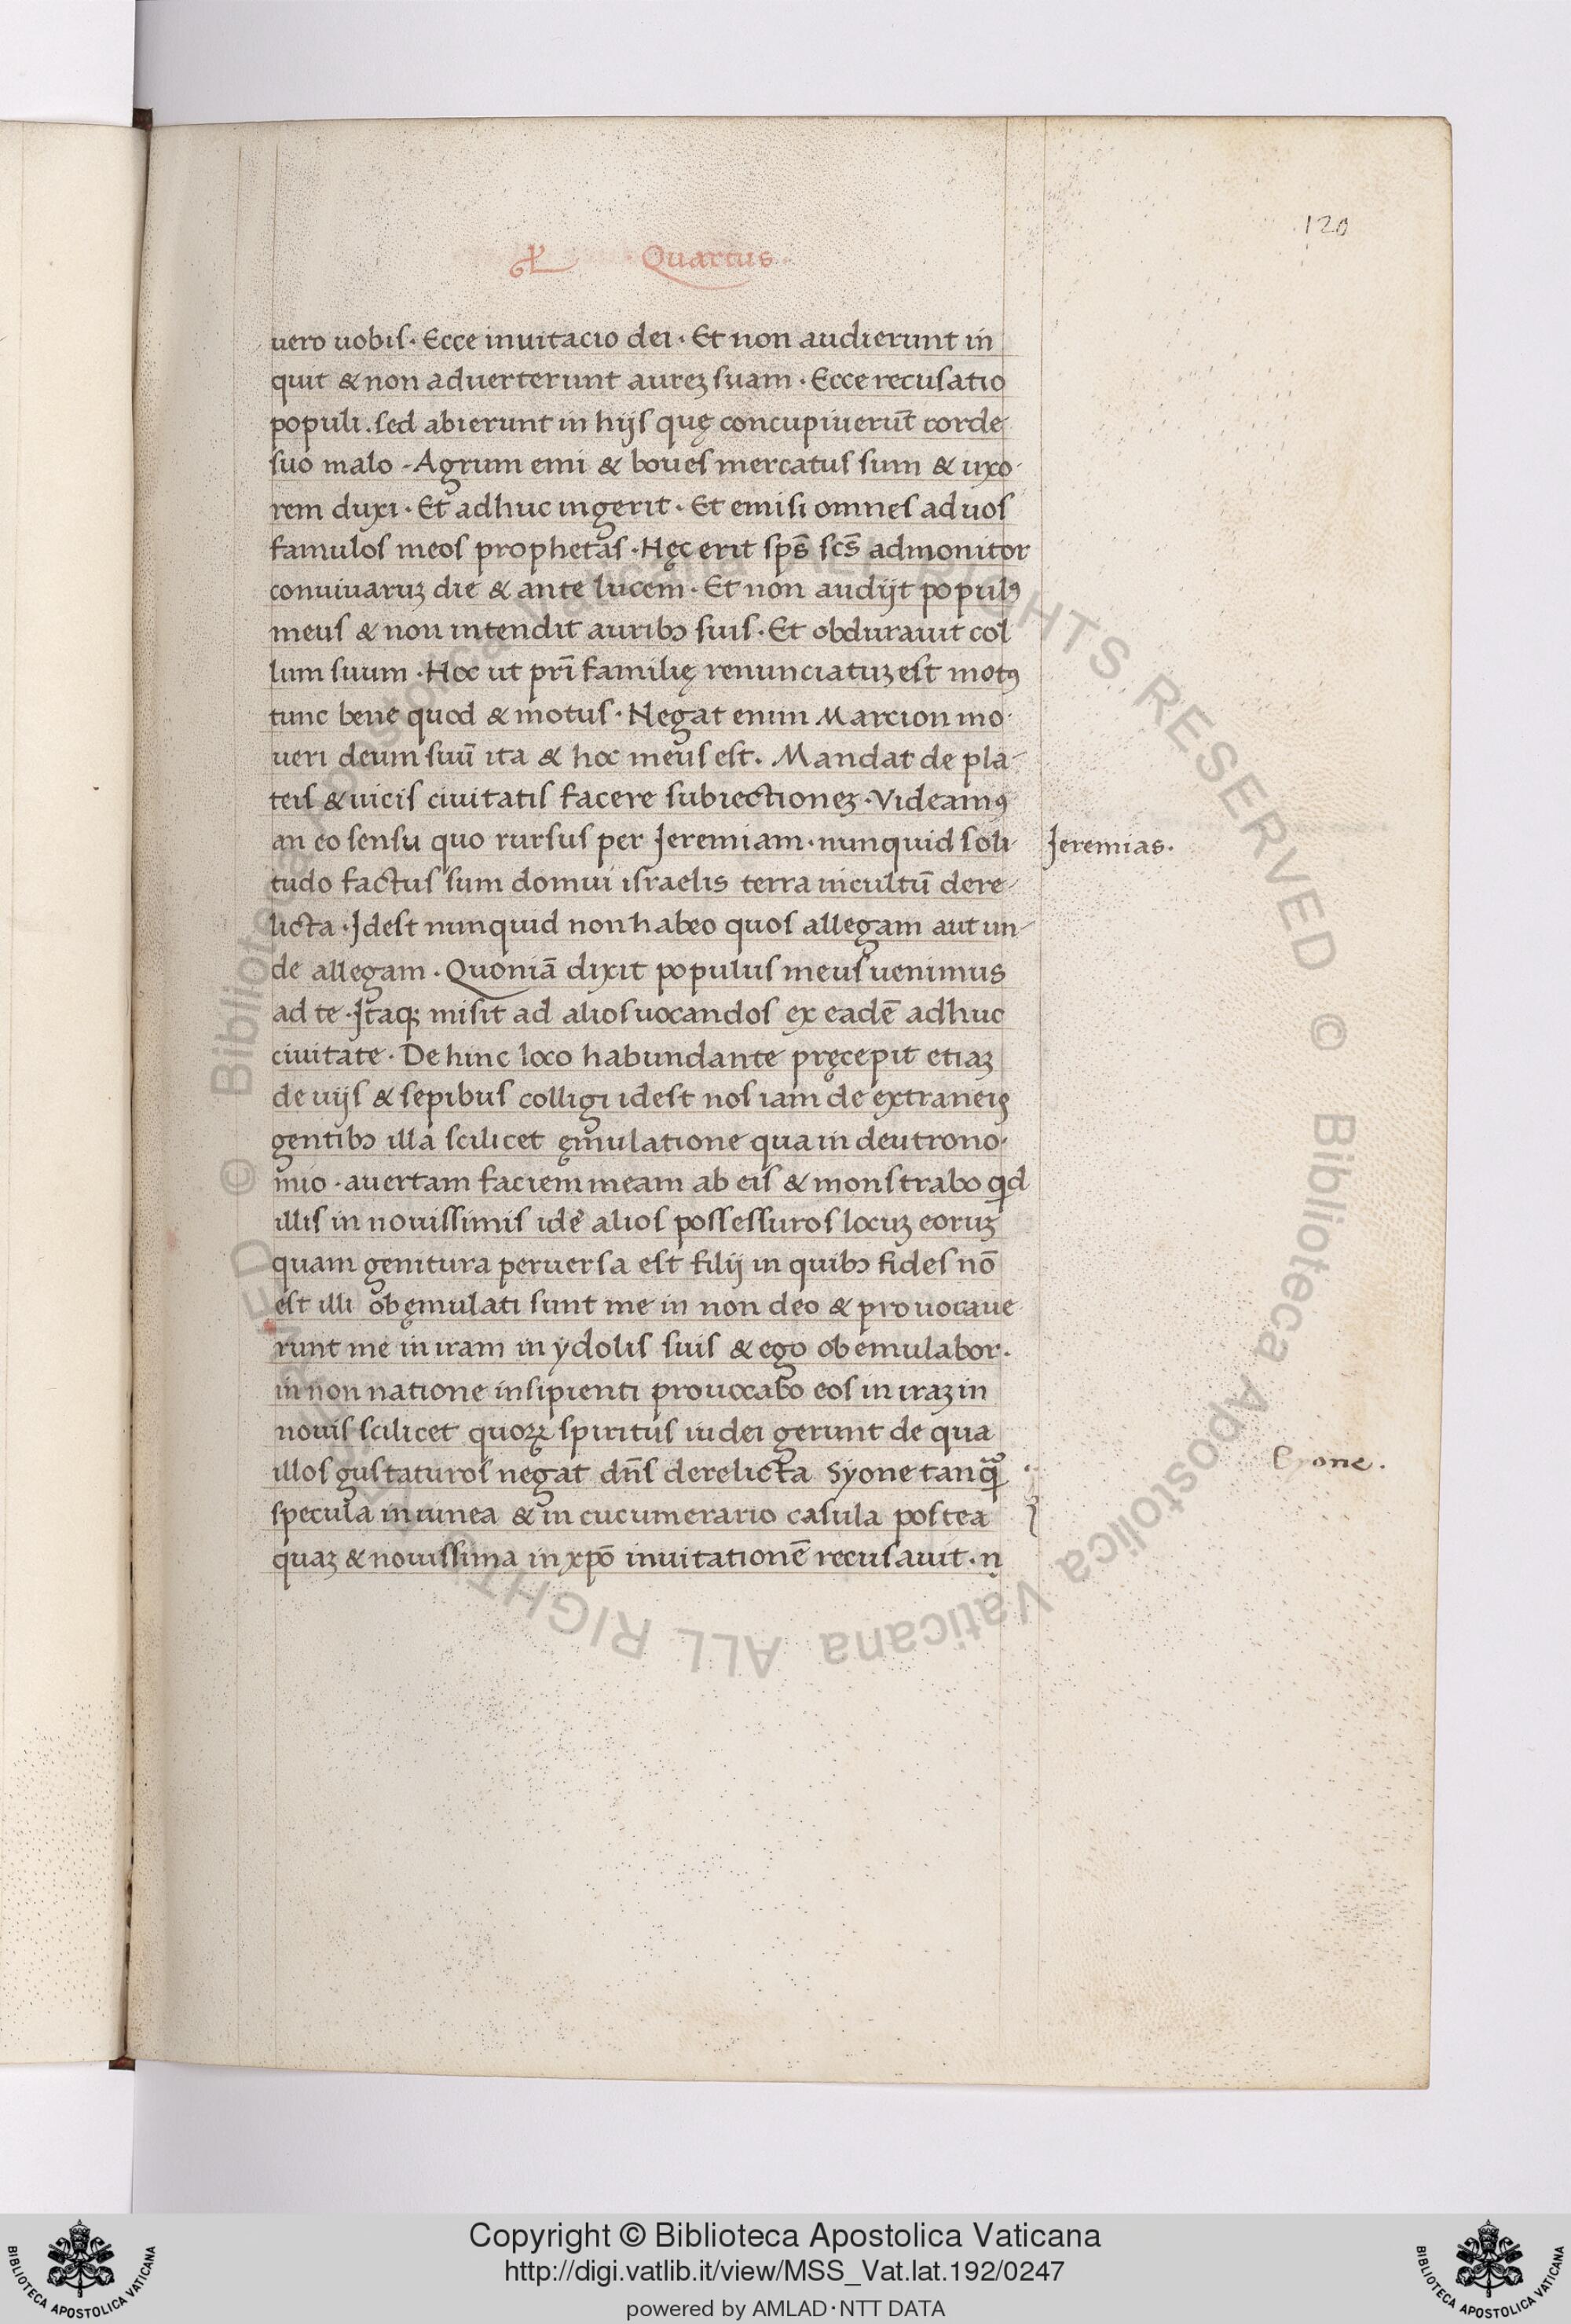 120
Quartus
uero uobis. Ecce inuitacio dei. Et non audierunt in
quit & non aduerterunt aureꝫ suam. Ecce recusatio
populi. sed abierunt in hijs quę concupiuerūt corde
suo malo - Agrum emi & boues mercatus sum & uxo-
rem duxi. Et adhuc ingerit. Et emisi omnes ad uos
famulos meos prophetas. Hęc erit sps̄ scs̄ admonitor
conuiuaruꝫ die & ante lucem. Et non audijt populꝰ
meus & non intendit auribꝫ suis. Et obdurauit col
lum suum. Hoc ut pr̄i familię renunciatuꝫ est motꝰ
tunc bene quod & motus. Negat enim Marcion mo-
ueri deum suū ita & hoc meus est. Mandat de pla-
teis & uicis ciuitatis facere subiectioneꝫ. Videamꝰ
an eo sensu quo rursus per Jeremiam. nunquid soli- Jeremias.
tudo factus sum domui israelis terra incultū dere-
licta. Idest nunquid non habeo quos allegam aut un-
de allegam. Quoniā dixit populus meus uenimus
ad te. Itaqꝫ misit ad alios uocandos ex eadē adhuc
ciuitate. Dehinc loco habundante pręcepit etiaꝫ
de uijs & sepibus colligi idest nos iam de extraneis
gentibꝫ illa scilicet ęmulatione qua in deutrono-
mio. auertam faciem meam ab eis & monstrabo qd
illis in nouissimis idē alios possessuros locuꝫ eoruꝫ
quam genitura peruersa est filij in quibꝫ fides nō
est illi obęmulati sunt me in non deo & prouocaue
runt me in iram in ydolis suis & ego obemulabor.
in non natione insipienti prouocabo eos in iraꝫ in
nouis scilicet quoꝝ spiritus iudei gerunt de qua
illos gustaturos negat dn̄s derelicta Syone tanqᷓ
specula in uinea & in cucumerario casula postea
quaꝫ & nouissima in xpō inuitationē recusauit. n
Copyright © Biblioteca Apostolica Vaticana
http://digi.vatlib.it/view/MSS_Vat.lat.192/0247
powered by AMLAD·NTT DATA
BIBLIOTECA APOSTOLICA VATICANA
BIBLIOTECA APOSTOLICA VATICANA
© Biblioteca Apostolica Vaticana ALL RIGHTS RESERVED © Biblioteca Apostolica Vaticana ALL RIGHTS RESERVED